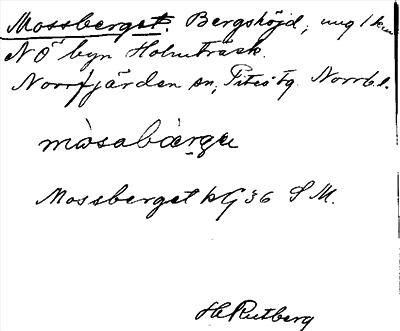 Mossberget. Bergshöjd, ung 1 km
NÖ byn Holmträsk.
Norrfjärden sn, Piteå tg. Norrb. l.
mòsabàrgɐ
Mossberget kG 36 S M.
H Rutberg